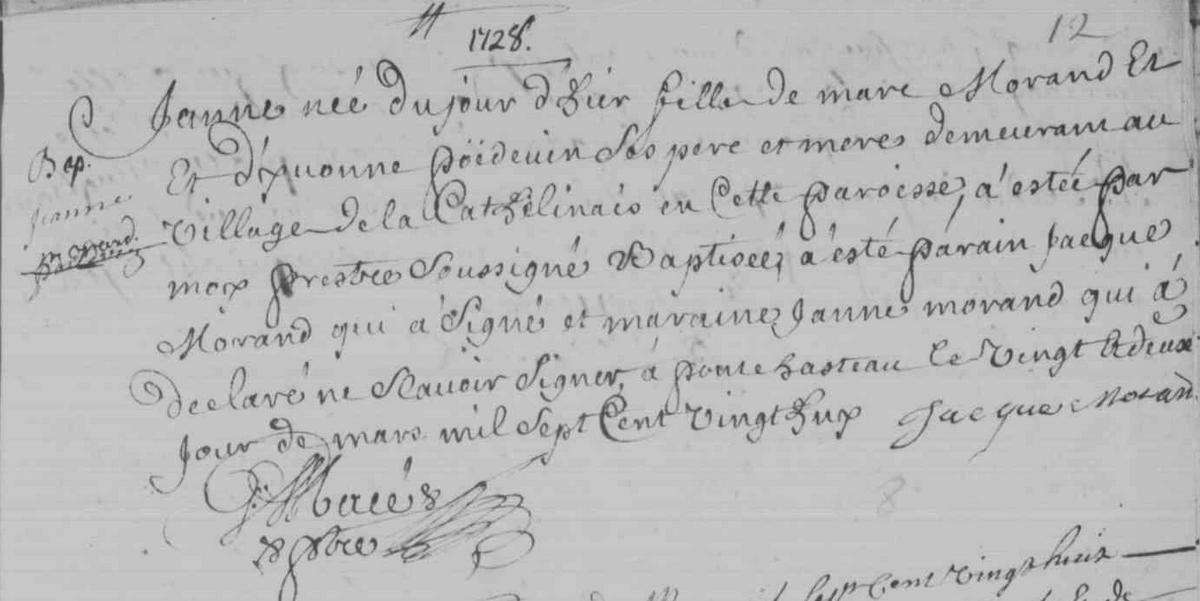 1728.
12
Janne née du jour d'hier fille de marc Morand Et
Bap. Et d'yuonne poidevin Ses pere et meres demeurant au
Jeanne village de la Cathelinais en Cette paroisse, a estée par
Morand. moy prestre Soussigné Baptisée, a esté parain Jacque
Morand qui a Signé et maraine, Janne morand qui á
declaré ne Scavoir Signer, á pontchasteau le vingt et deuxe
Jour de mars mil Sept Cent vingt huy Jacque Morand
Macé
pbre
Sept Cent vingt huit